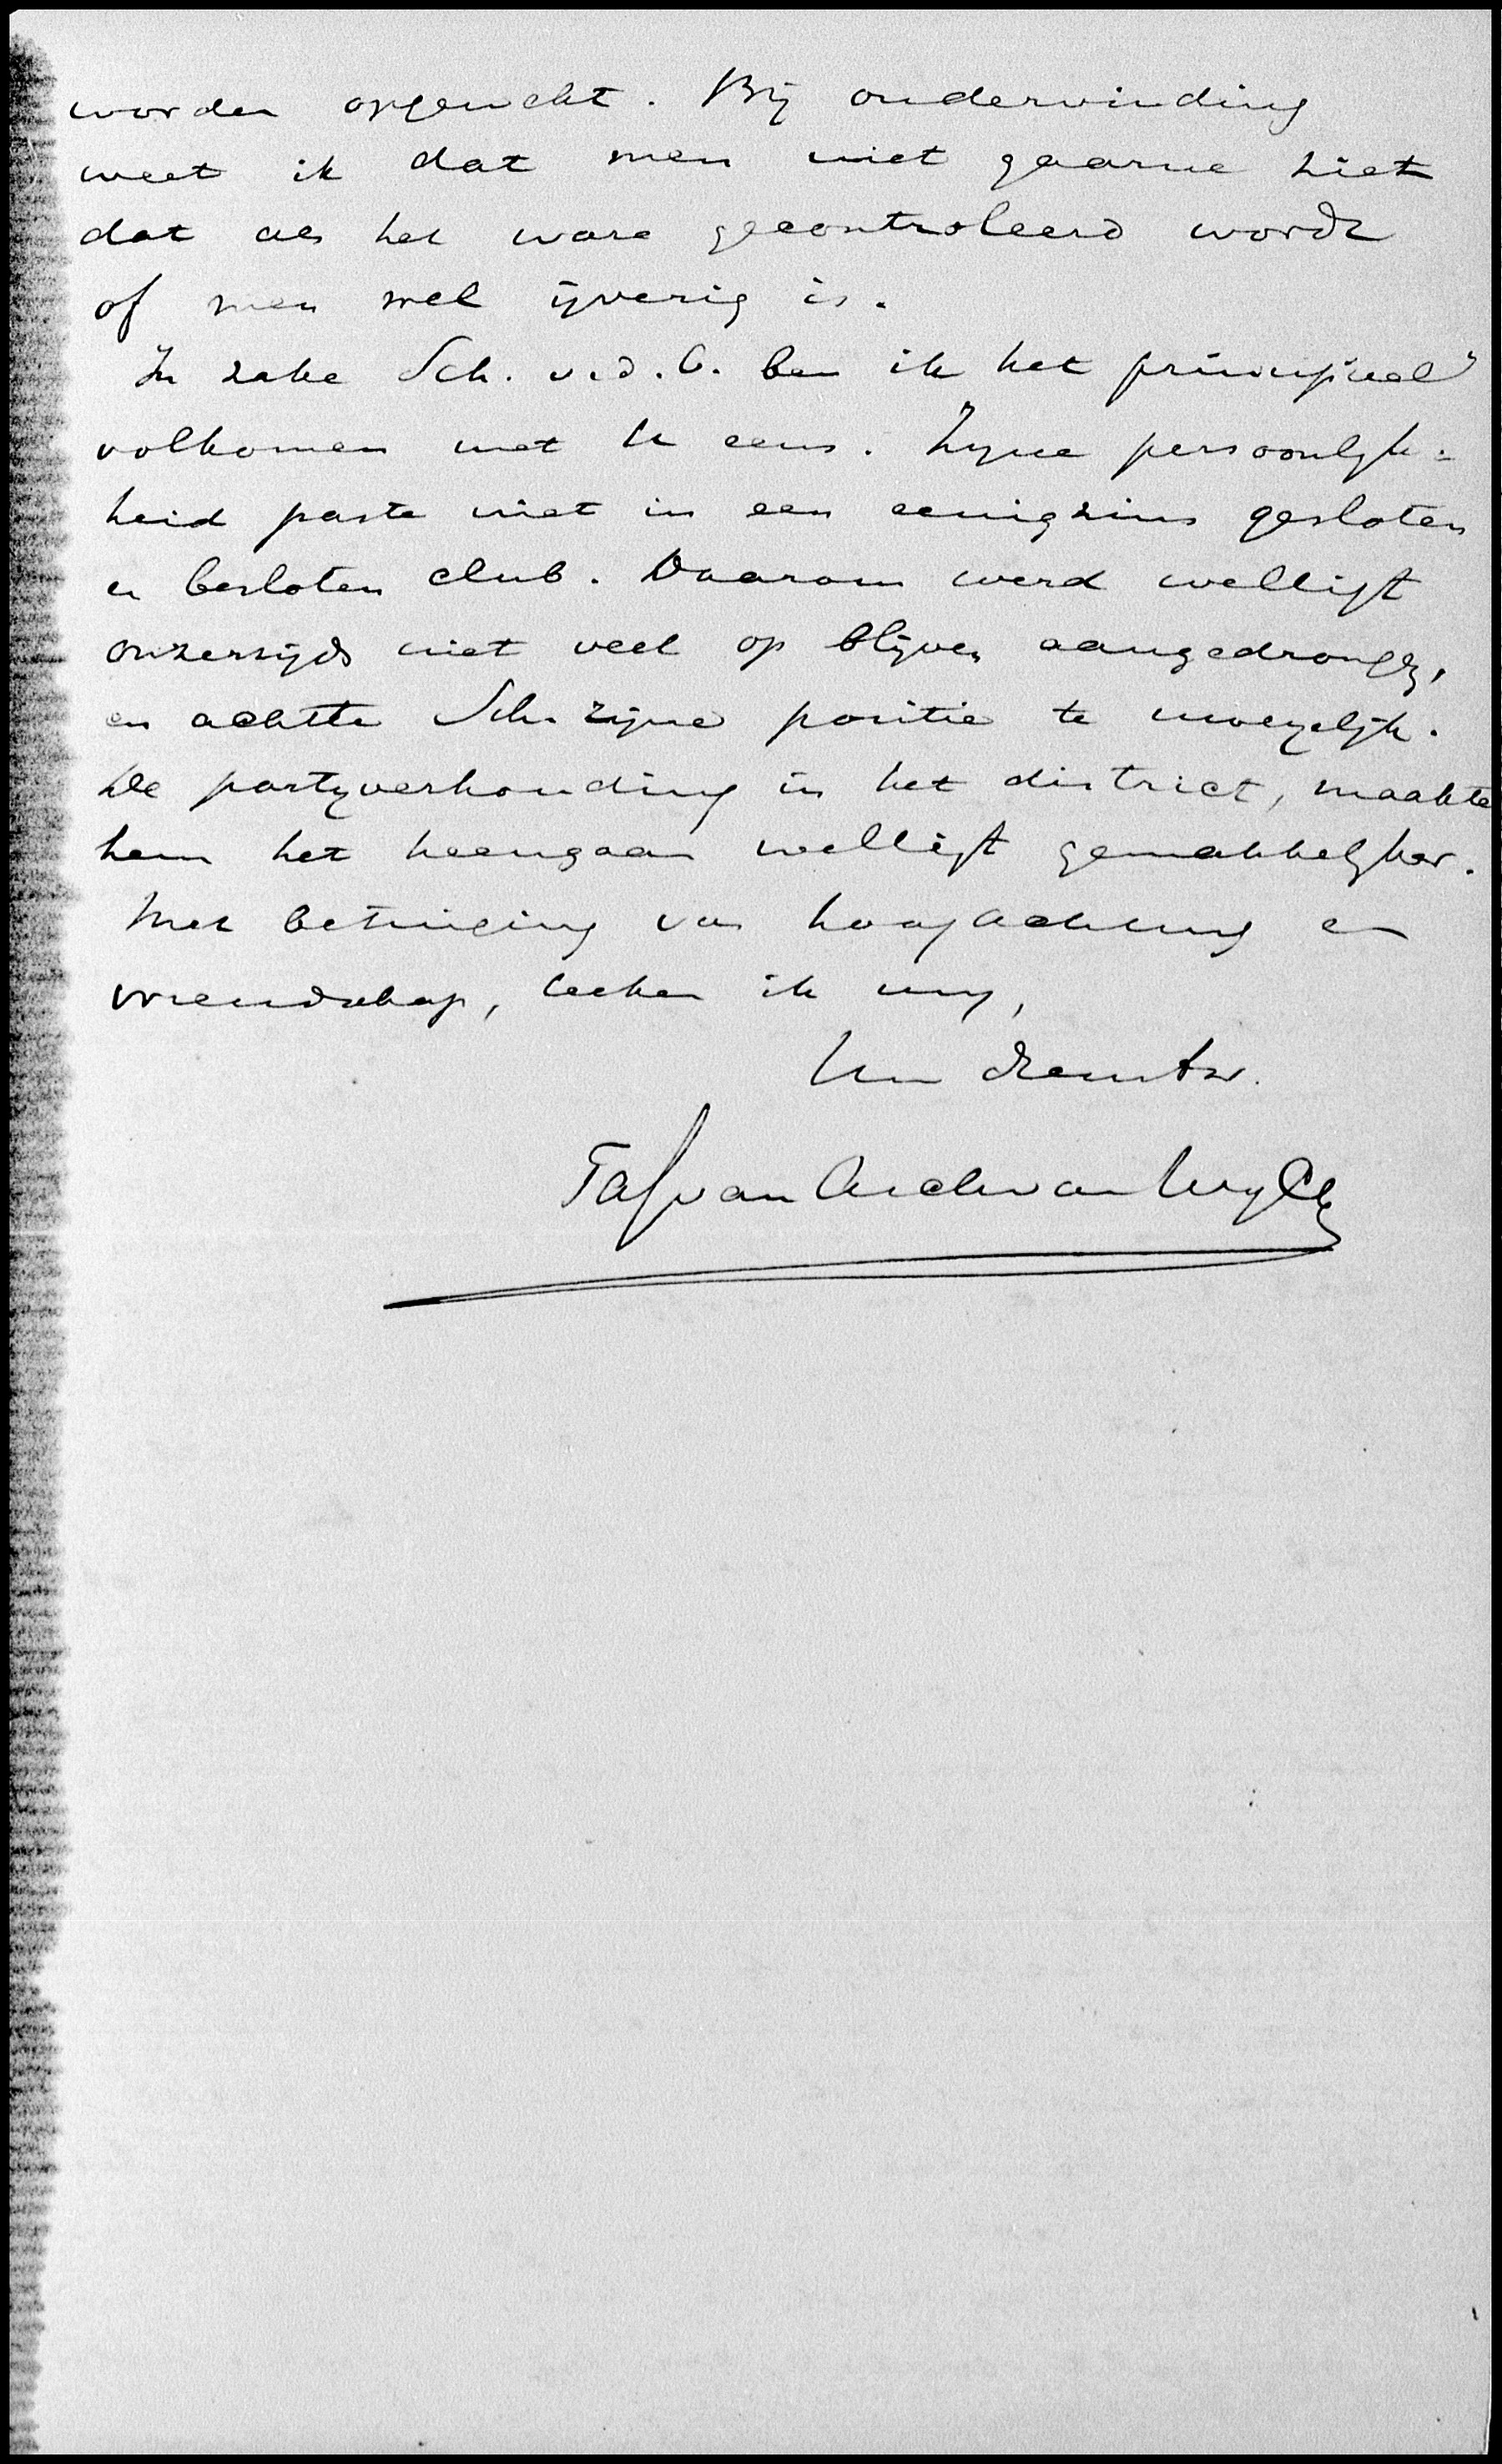 worden opgewekt. Bij ondervinding
weet ik dat men niet gaarne ziet
dat als het ware gecontroleerd wordt
of men wel ijverig is.
In zake Sch. v. d. B. ben ik het principieel
volkomen met U eens. Zijne persoonlijk=
heid paste niet in een eenigzins gesloten
en besloten club. Daarom werd welligt
onzerzijds niet veel op blijven aangedrongen,
en achtte Sch. zijne positie te moeyelijk.
De partijverhouding in het district, maakte
hem het heengaan welligt gemakkelijker.
Met betuiging van hoogachting en
vriendschap, teeken ik mij,
Uw dienstw.
van Asch van Wyck